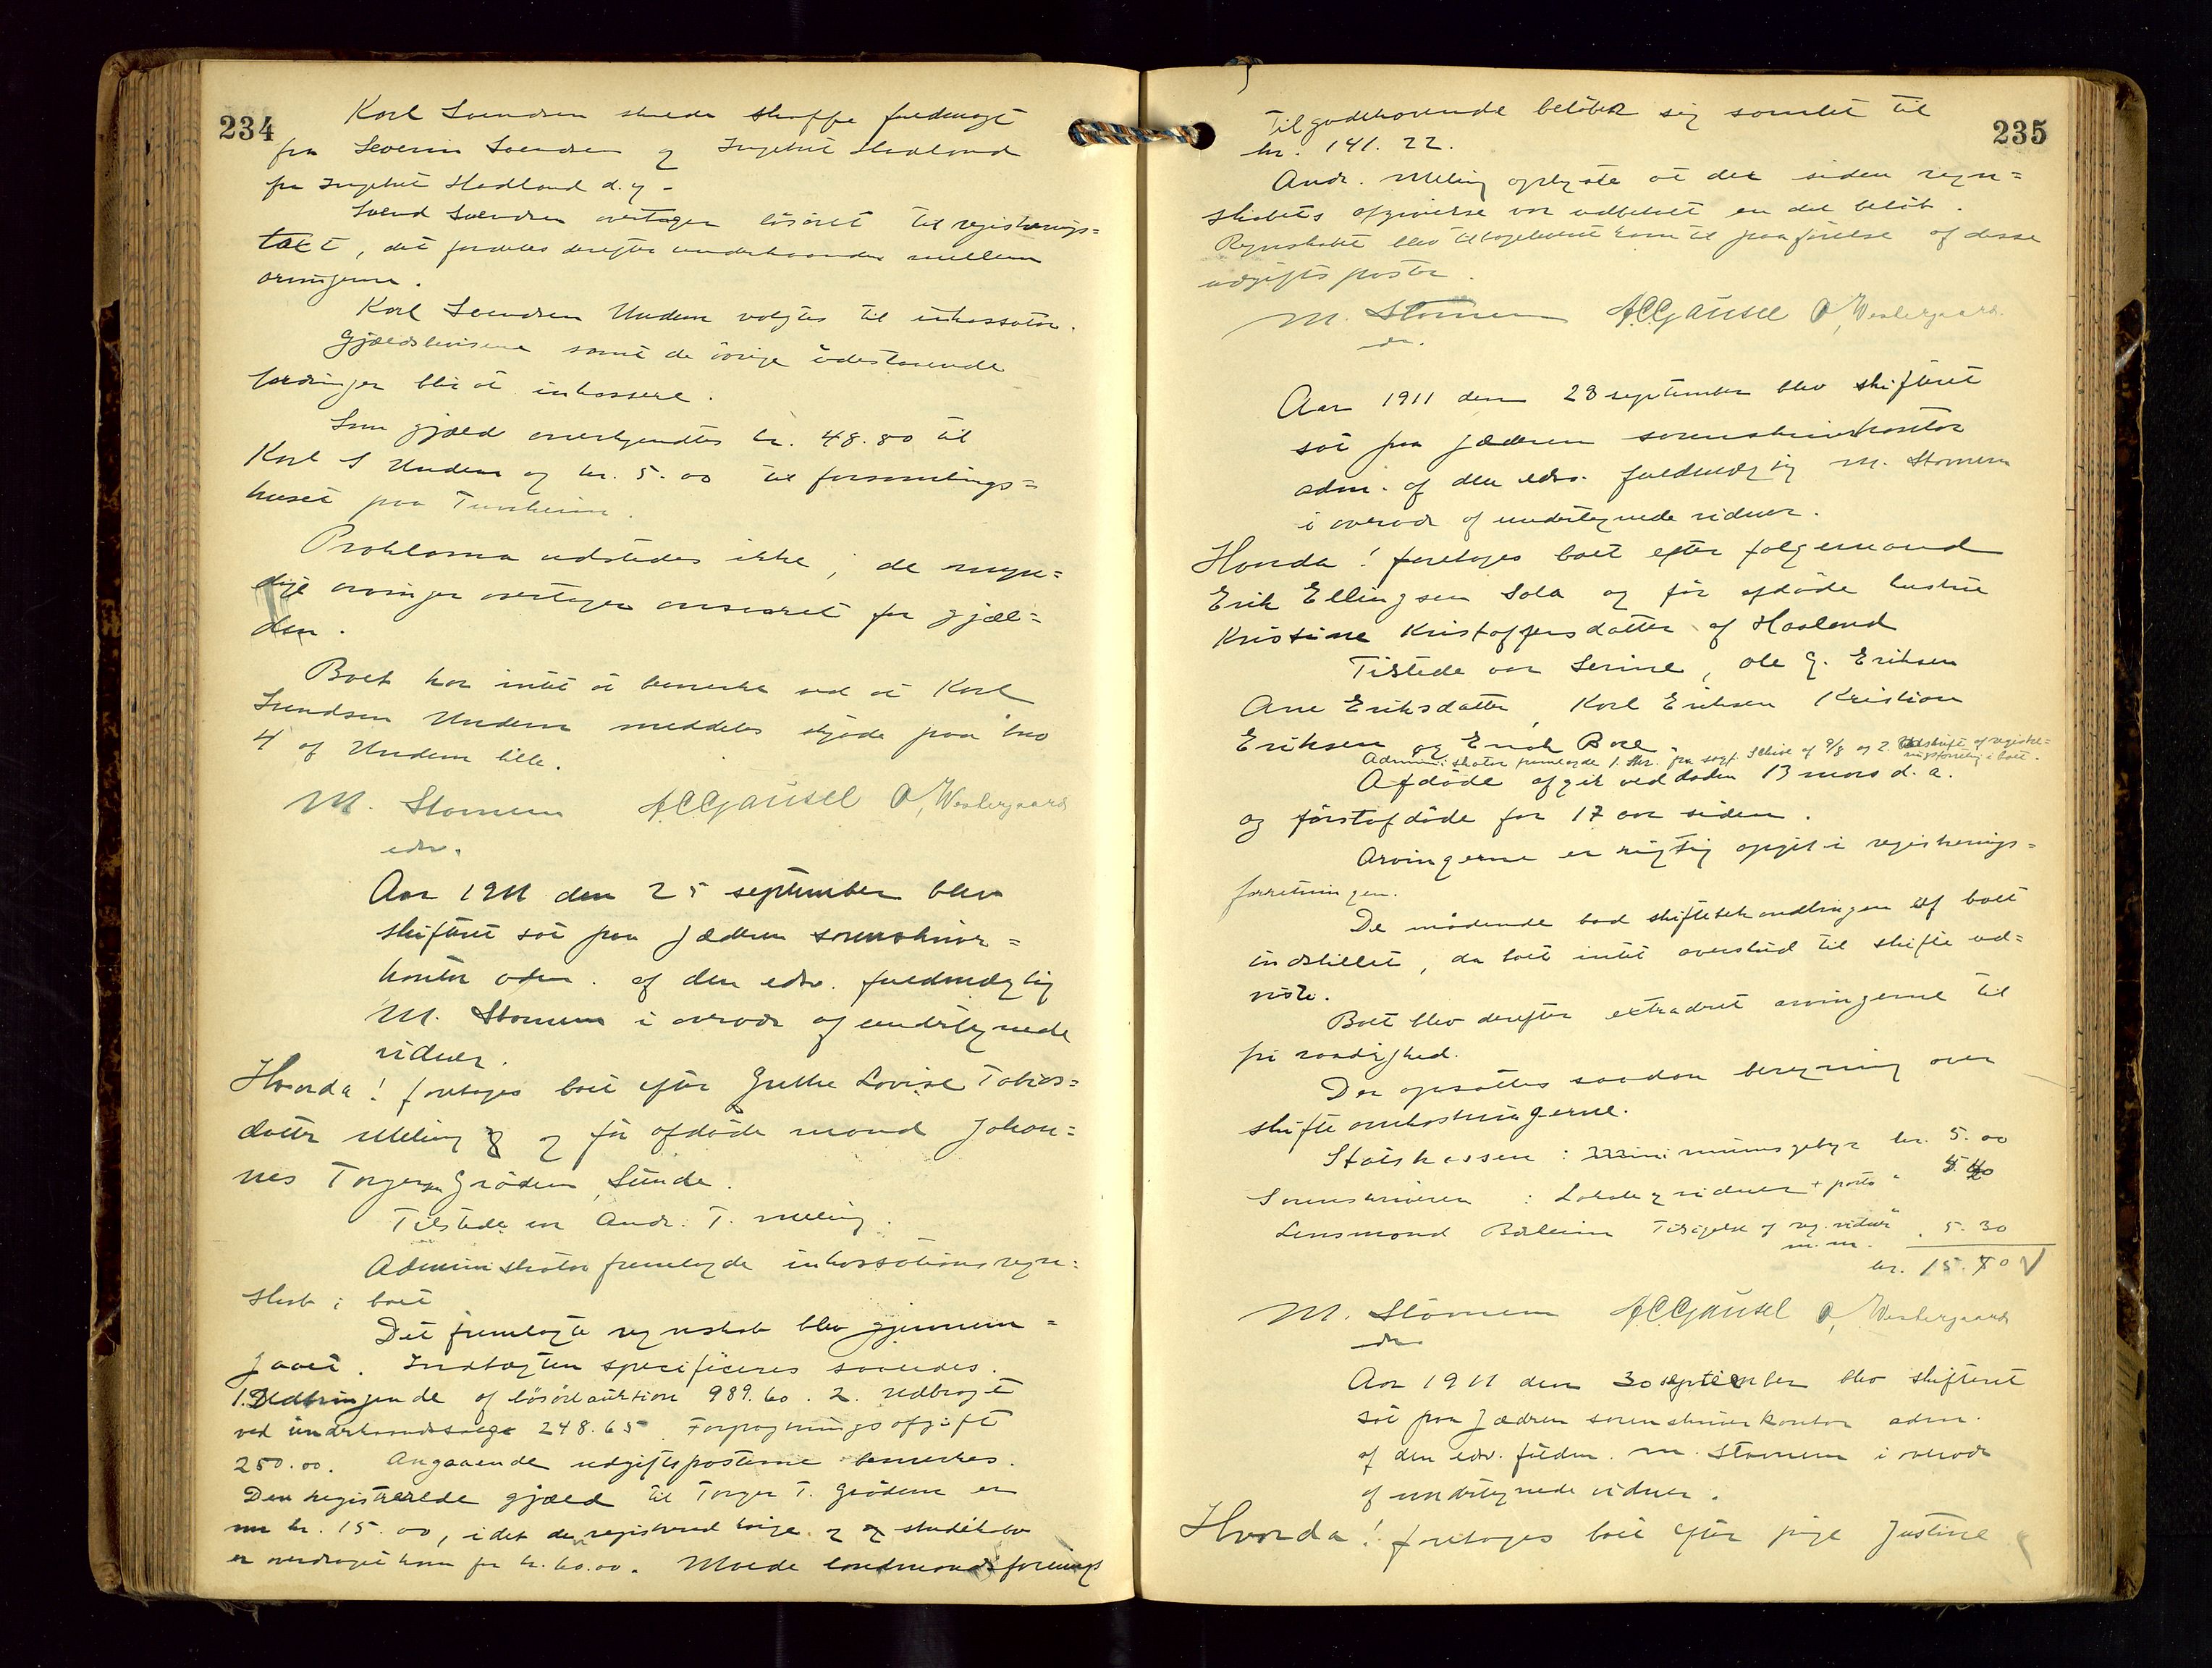 234
Karl Svendsen skulde skaffe fuldmagt
fra Severin Svendsen og Ingebret Hadland
fra Ingebret Hadland d.y -
Svend Svendsen overtager løsøret til registrerings=
takt, det fordeles derefter underhaanden mellem
arvingerne.
Karl Svendsen Undem valgtes til inkassator.
Gjældsbevisene samt de øvrige udestaaende
fordringer blir at inkassere.
Som gjæld anerkjendtes kr. 48.80 til
Karl S Undem og kr. 5.00 til forsamlings=
huset paa Tunheim.
Proklama udstedes ikke, de myn=
dige arvinger overtager ansvaret for gjæl=
den.
Boet har intet at bemerke ved at Karl
Svendsen Undem meddeles skjøde paa bno
4 af Undem lille.
M. Stornem ACGausel O, Westergaard
edsv.
Aar 1911 den 25 september blev
skifteret sat paa Jæderen sorenskriver=
kontor adm. af den edsv. fuldmægtig
M. Stornem i overvær af undertegnede
vidner.
Hvorda! foretoges boet efter Grethe Lovise Tobias=
datter Meling og før afdøde mand Johan=
nes Torgersen Grødem, Sunde.
Tilstede var Andr. T. Meling.
Administrator fremlagde inkassationsregn=
skab i boet
Det fremlagte regnskab blev gjennem=
gaaet. Indtægten specificeres saaledes.
1. Udbringende af løsøreauktion 989.60. 2. Udbragt
ved underhaandssalge 248.65. Forpagtningsafgift
250.00. Angaaende udgiftsposterne bemerkes.
Den registrerede gjæld til Torger T. Grødem er
nu kr. 15.00, idet den registrerede og
er overdraget ham for kr. 60.00. landmandsforenings
235
Tilgodehavende beløber sig samlet til
kr. 141.22.
Andr. Meling oplyste at der siden regn=
skabets afgivelse var udbetalt en del beløb.
Regnskabet blev tilbageleveret ham til paaførelse af disse
udgiftsposter.
M. Stornem ACGausel O, Westergaard
edsv.
Aar 1911 den 28 september blev skifteret
sat paa Jæderen sorenskriverkontor
adm. af den edsv. fuldmægtig M. Stornem
i overvær af undertegnede vidner.
Hvorda! foretoges boet efter følgemand
Erik Ellingsen Sola og før afdøde hustru
Kristine Kristoffersdatter af Haaland
Tilstede var Serine, Ole G. Eriksen
Ane Eriksdatter, Karl Eriksen Kristian
Eriksen og Enok Boe.
Administrator fremlagde 1. Skr. fra sagf. Schive af 9/8 og 2. Udskrift af registre=
ringsforretning i boet.
Afdøde afgik ved døden 13 mars d. a.
og førstafdøde for 17 aar siden.
Arvingerne er rigtig opgit i registrerings=
forretningen.
De mødende bad skiftebehandlingen af boet
indstillet, da boet intet overskud til skifte ud=
viste.
Boet blev derefter extraderet arvingerne til
fri raadighed.
Der opsattes saadan beregning over
skifteomkostningerne.
Statskassen: minimumsgebyr kr. 5.00
Sorenskriveren: Lokale og vidner + porto " 5.40
Lensmand Tilsigelse og reg. vidner " 5.30
m.m.
kr. 15.70 V
M. Stornem ACGausel O, Westergaard
edsv
Aar 1911 den 30 september blev skifteret
sat paa Jædren sorenskriverkontor adm.
af den edsv. fuldm. M. Stornem i overvær
af undertegnede vidner.
Hvorda! foretoges boet efter pige Justine